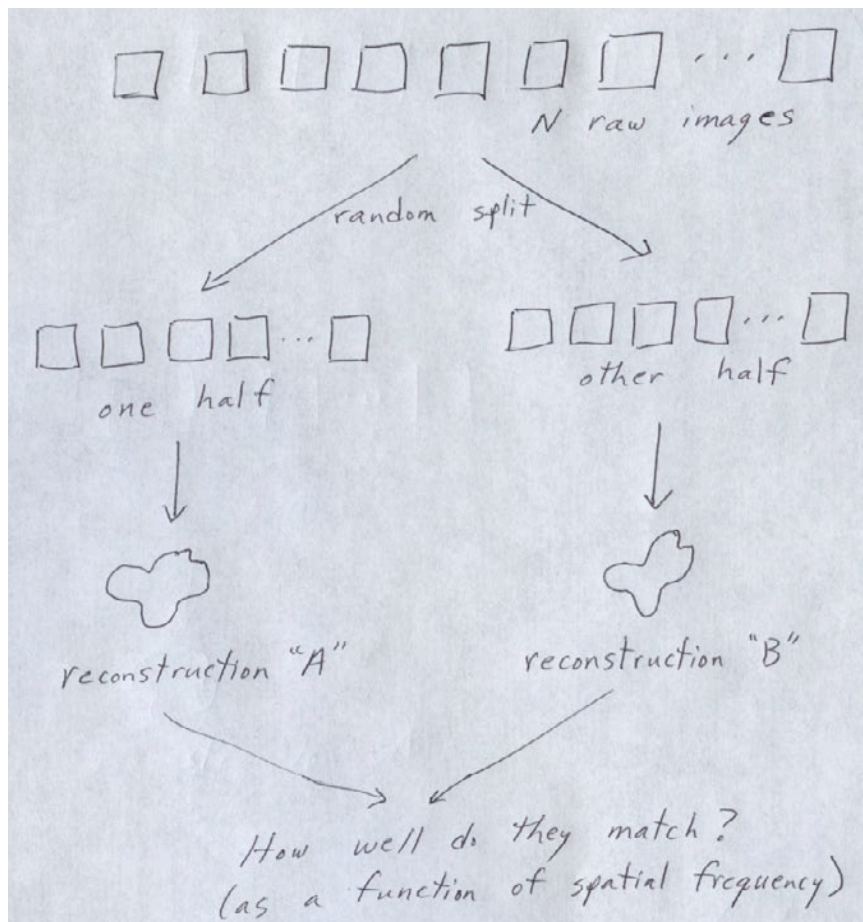 N raw images
random split
one half
other half
reconstruction "A"
reconstruction "B"
How well do they match?
(as a function of spatial frequency)